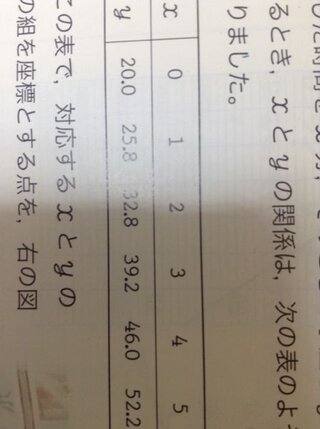 した時間を
るとき, xとyの関係は, 次の表のよ
りました。
x 0 1 2 3 4 5
y 20.0 25.8 32.8 39.2 46.0 52.2
この表で, 対応するxとyの
の組を座標とする点を, 右の図